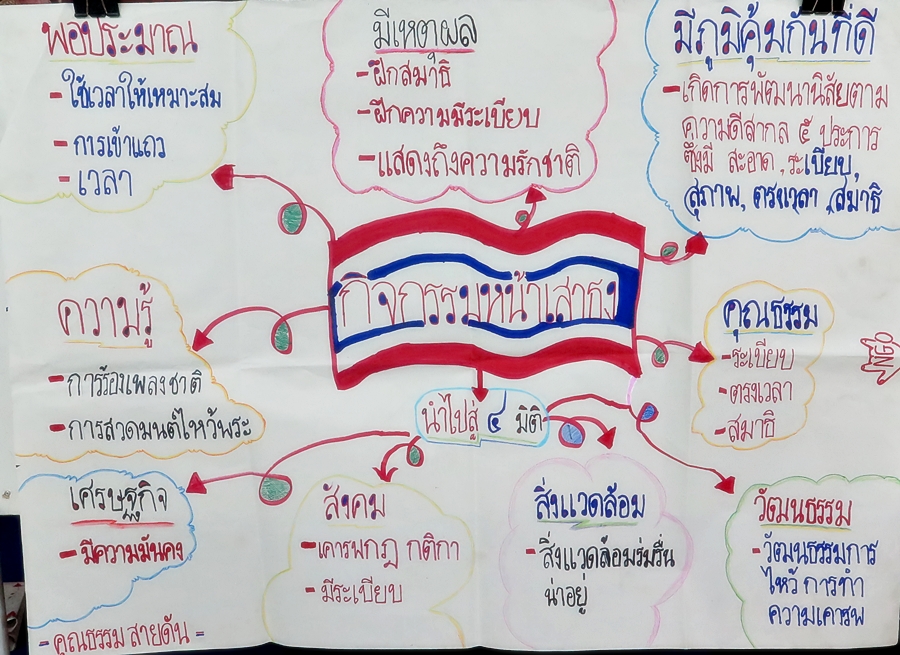 พอประมาณ
- ใช้เวลาให้เหมาะสม
- การเข้าแถว
- เวลา
มีเหตุผล
- ฝึกสมาธิ
- ฝึกความมีระเบียบ
- แสดงถึงความรักชาติ
มีภูมิคุ้มกันที่ดี
- เกิดการพัฒนานิสัยตาม
ความดีสากล ๕ ประการ
ซึ่งมี สะอาด, ระเบียบ,
สุภาพ, ตรงเวลา, สมาธิ
กิจกรรมหน้าเสาธง
ความรู้
- การร้องเพลงชาติ
- การสวดมนต์ไหว้พระ
คุณธรรม
- ระเบียบ
- ตรงเวลา
- สมาธิ
นำไปสู่ ๔ มิติ
เศรษฐกิจ
- มีความมั่นคง
สังคม
- เคารพกฎ กติกา
- มีระเบียบ
สิ่งแวดล้อม
- สิ่งแวดล้อมร่มรื่น
น่าอยู่
วัฒนธรรม
- วัฒนธรรมการ
ไหว้ การทำ
ความเคารพ
- คุณธรรม สายดัน -